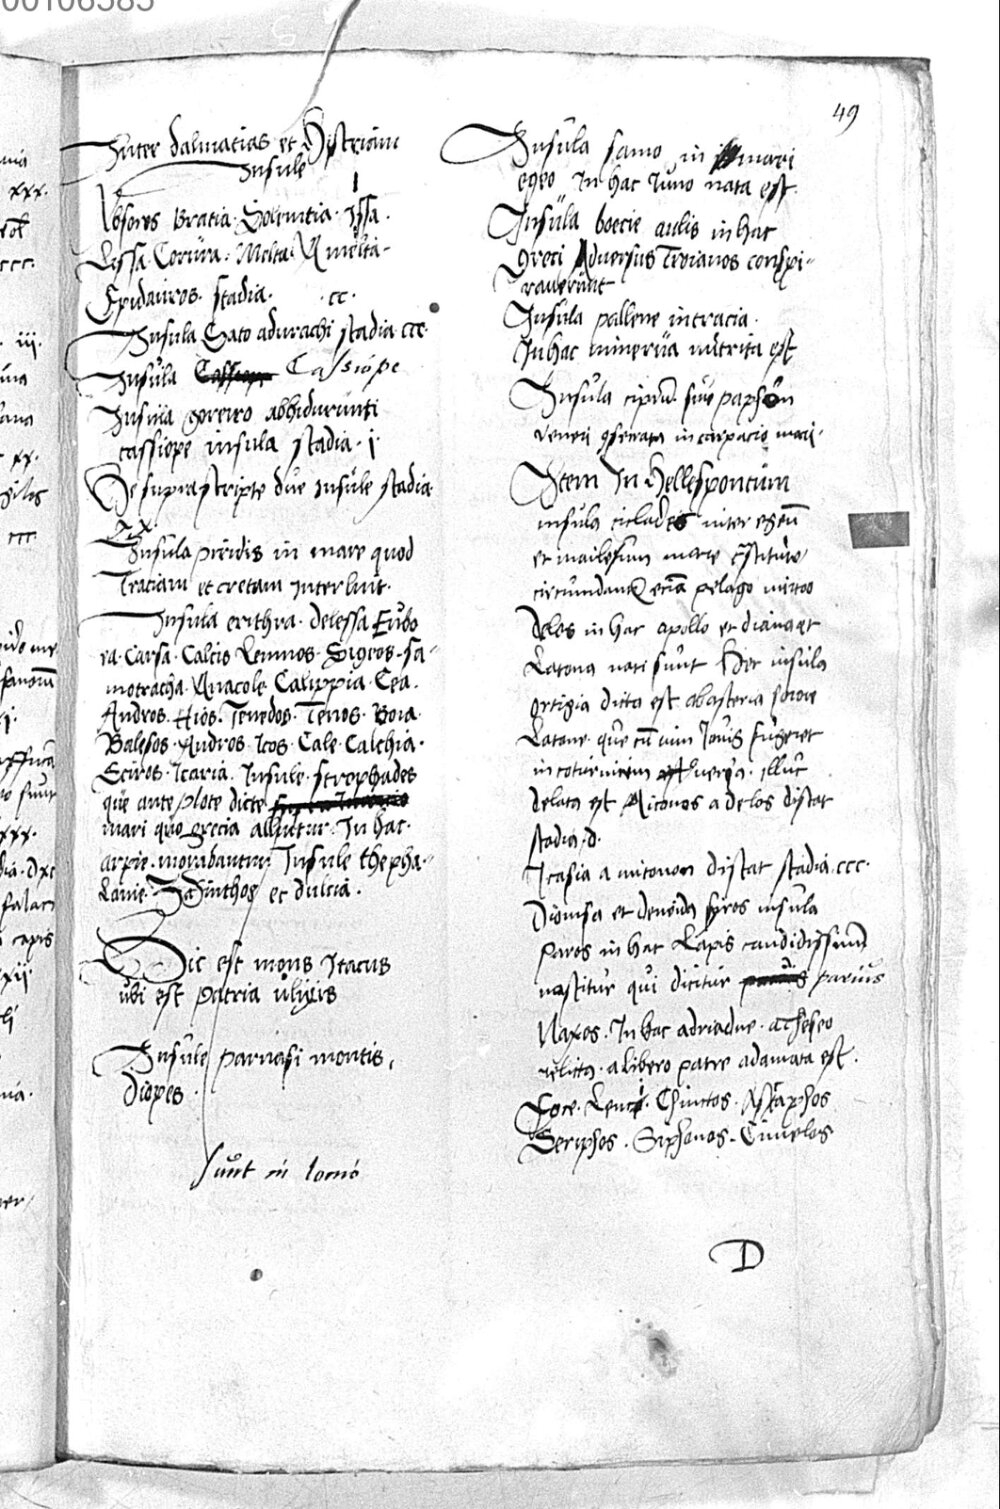 49
Inter dalmatias et Histriam
Insule
Absores Bratia. Solentia. Issa.
Lissa. Corura. Melta. Amelta.
Epidauros. stadia. cc.
Insula Sato adurachi stadia ccc.
Insula Cassiope
Insula goreiro abhidurunti
cassiope insula stadia. i
He suprascripte due insule stadia
xx.
Insula piridis in mare quod
Traciam et cretam interluit.
Insula erithra. delessa Eubo
ra. Carsa. Calcis Lemnos. Sigros. sa-
motracha. Anacole. Calippia. Cea.
Andros. Hios. Tenedos. Tenos. Boia.
Balesos. Andros. Icos. Cale. Calchia.
Sciros. Icaria. Insule. strophades
que ante plote dicte
mari quo grecia alluitur. In hac.
arpie. morabantur Insule thepha-
lanie. Zacinthos et dulcia.
Hic est mons Itacus
ubi est patria ulixis
Insule parnasi montis.
Diopes
sunt in Ionio
Insula samo in mari
egeo In hac Iuno nata est.
Insula boecie aulis in hac
greci Adversus Troianos conspi-
raverunt
Insula pallene in tracia.
In hac minerua nutrita est
Insula cipru. sive paphon
veneri 9secrata in carpacio mari.
Item In Hellespontum
insula ciclades inter egeu
et maleseum mare 9stitute
circumdant ecia pelago mirtoo
Delos in hac apollo et diana et
Latona nati sunt Hec insula
ortigia dicta est abasteria sorore
Latone. que cu vim Iovis fugeret
in coturnicem versa. illuc
delata est Miconos a delos distat
stadia. d.
Icasia a miconon distat stadia. ccc.
Dionisa et denoida spros insula
Paros in hac Lapis candidissim
nascitur qui dicitur parius
Naxos. In hac adriadne. a Theseo
relicta. a Libero patre adamata est.
Foce. Leuce. Chinctos. Astaphos
Seriphos. Siphonos. Cimelos
D